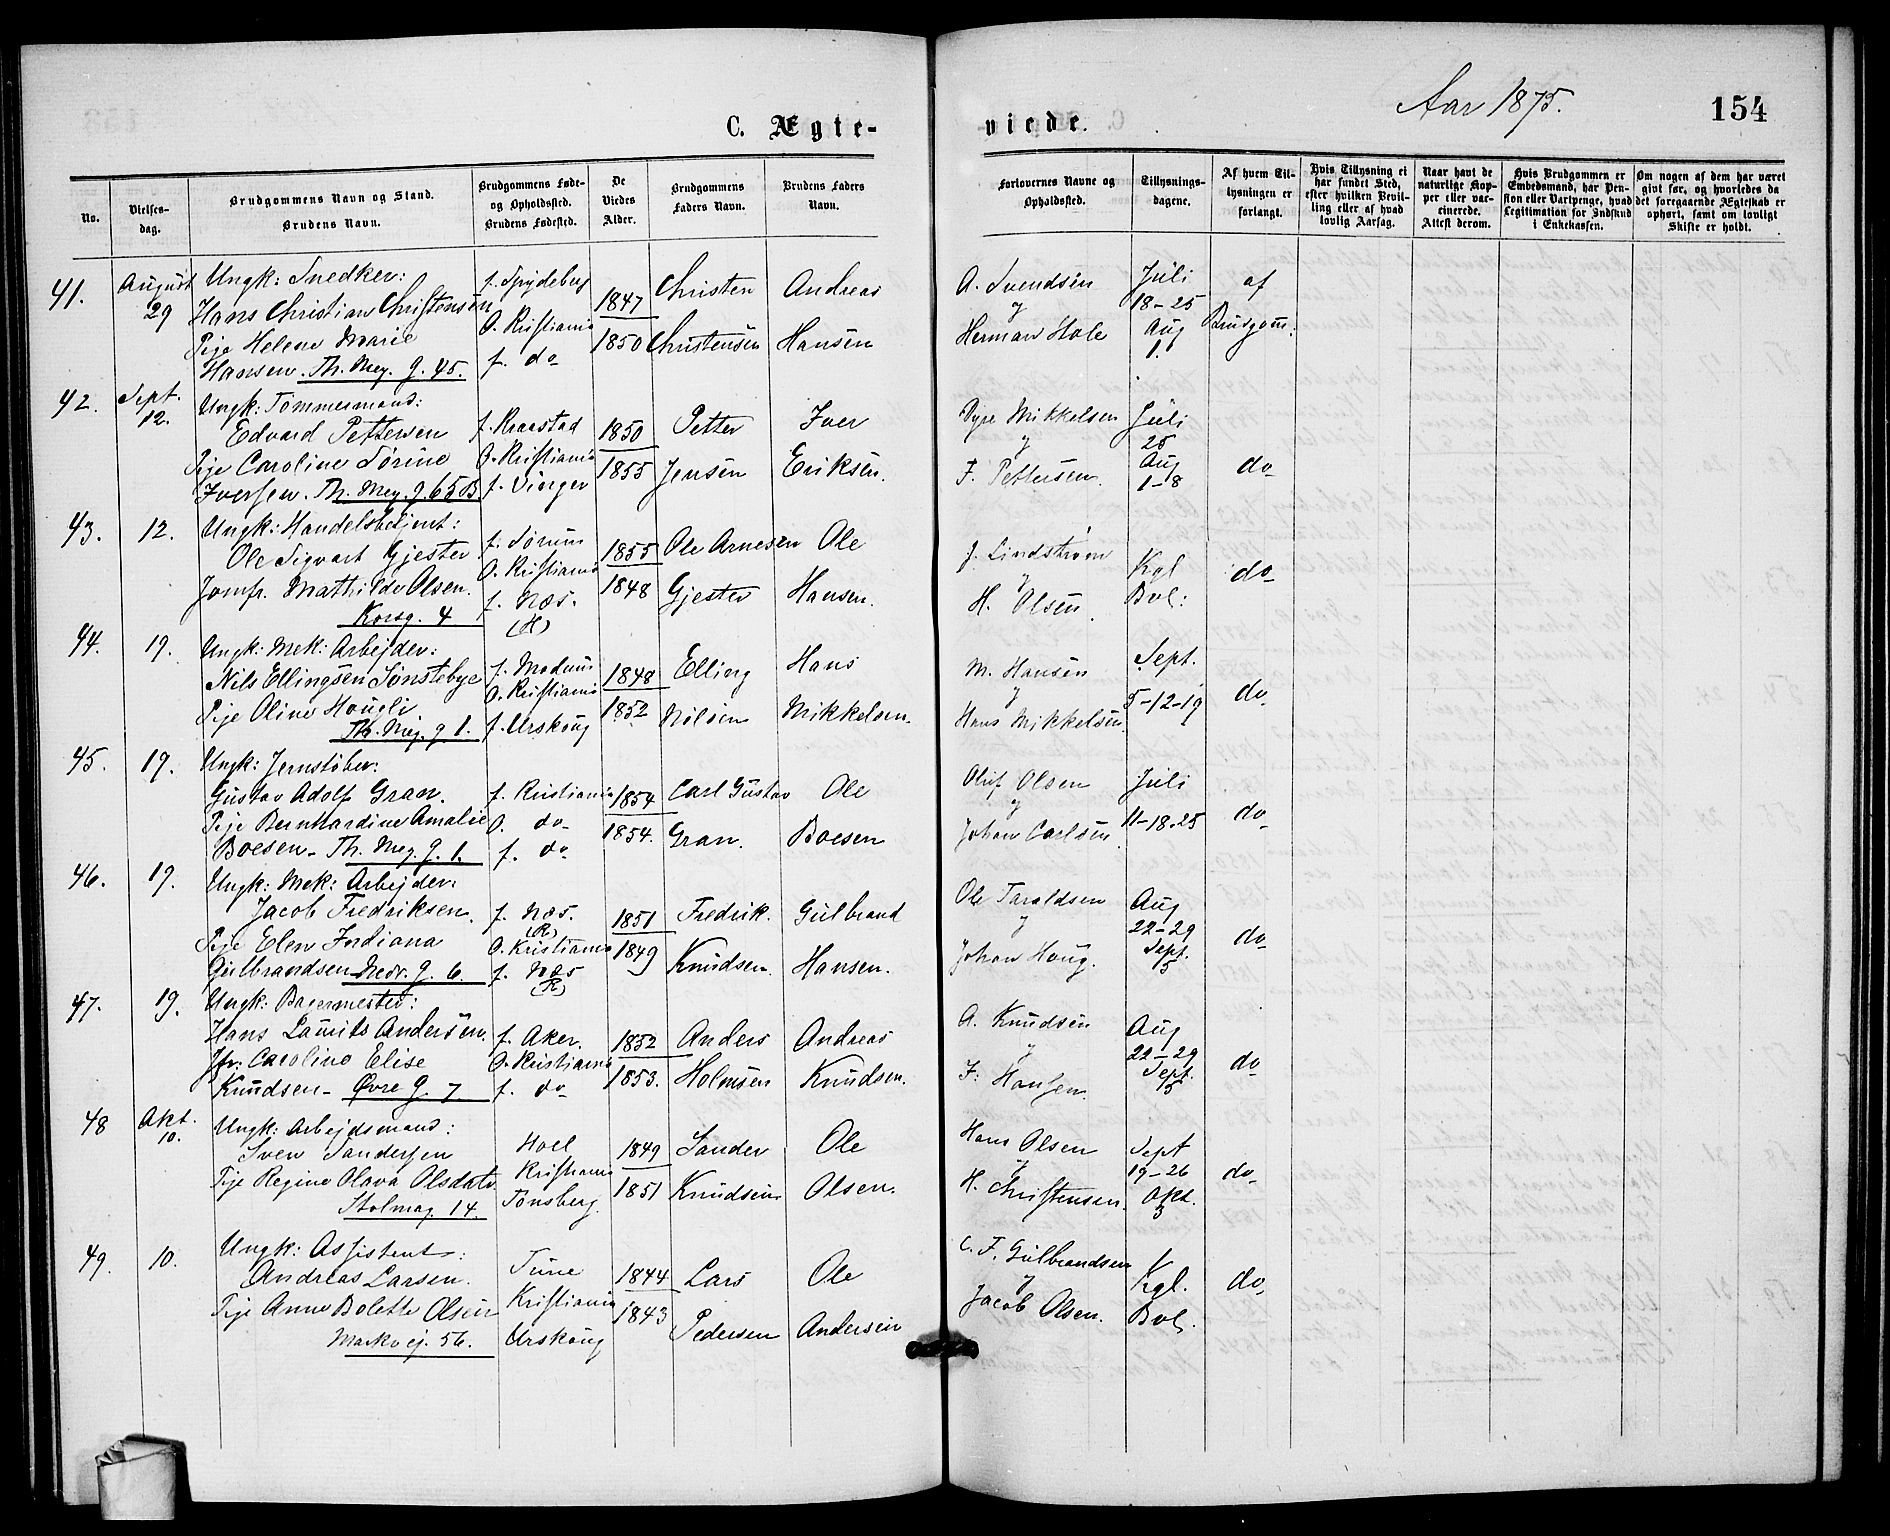 Aar 1875.
154
C. Ægte-
viede.
No.
Vielses-
dag.
Brudgommens Navn og Stand.
Brudens Navn.
Brudgommens Føde-
og Opholdssted.
Brudens Fødested.
De
Viedes
Alder.
Brudgommens
Faders Navn.
Brudens Faders
Navn.
Forlovernes Navne og
Opholdssted.
Tillysnings-
dagene.
Af hvem Til-
lysningen er
forlangt.
Hvis Tillysning ei
har fundet Sted,
efter hvilken Bevil-
ling eller af hvad
lovlig Aarsag.
Naar havt de
naturlige Kop-
per eller vac-
cinerede.
Attest derom.
Hvis Brudgommen er
Embedsmand, har Pen-
sion eller Vartpenge, hvad
Legitimation for Indskud
i Enkekassen.
Om nogen af dem har været
givt før, og hvorledes da
det foregaaende Ægteskab er
ophørt, samt om lovligt
Skifte er holdt.
41.
August
29
Ungk: Snedker:
Hans Christian Christensen
Pige Helene Marie
Hansen. Th. Mey. g. 45.
f. Spydeberg
O. Kristiania
f. do
1847
1850
Christen
Christensen
Andreas
Hansen
A. Svendsen
og
Herman Hole
Juli
18-25
Aug
1.
af
Brudgom.
42.
Sept.
12.
Ungk: Tømmermand:
Edvard Pettersen
Pige Caroline Sørine
Iversen. Th. Mey. g. 65 B.
f. Kraastad
O. Kristiania
f. Vinger
1850
1855
Petter
Jensen
Iver
Eriksen.
Dyre Mikkelsen
og
F. Pettersen.
Juli
25
Aug
1-8
do
43.
12.
Ungk: Handelsbetjent:
Ole Sigvart Gjester
Jomfr. Mathilde Olsen.
Korsg. 4
f. Sørum
O. Kristiania
f. Næs.
(H)
1855
1848
Ole Arnesen
Gjester
Ole
Hansen.
J. Lindstrøm
og
H. Olsen.
Kgl
Bvl:
do
44.
19.
Ungk: Mek: Arbejder:
Nils Ellingsen Sønstebye
Pige Oline Hougli
Th. Mey. g 1.
f. Modum
O. Kristiania
f. Urskoug
1848
1852
Elling
Nilsen
Hans
Mikkelsen.
M. Hansen
og
Hans Mikkelsen
Sept.
5-12-19
do
45.
19.
Ungk: Jernstøber:
Gustav Adolf Gran.
Pige Bernhardine Amalie
Boesen. Th. Mey. g. 1.
f. Kristiania
O. do
f. do
1854
1854.
Carl Gustav
Gran.
Ole
Boesen
Oluf Olsen
og
Johan Carlsen.
Juli
11-18-25
do
46.
19.
Ungk: Mek: Arbejder:
Jacob Fredriksen.
Pige Elen Indiana
Gulbrandsen Nedr. g. 6.
f. Næs.
(R)
O. Kristiania
f. Næs
(R)
1851
1849
Fredrik.
Knudsen.
Gulbrand
Hansen.
Ole Taraldsen
og
Johan Houg.
Aug
22-29
Sept.
5
do
47.
19.
Ungk: Bagermester:
Hans Laurits Andersen.
Jfr. Caroline Elise
Knudsen. Øvre g. 7
f. Aker.
O. Kristiania
f. do
1852
1853.
Anders
Holmsen
Andreas
Knudsen.
A. Knudsen
og
F. Hansen.
Aug
22-29
Sept.
5
do
48
Okt.
10.
Ungk: Arbejdsmand:
Sven Sandersen
Pige Regine Olava Olsdatr
Stolmag. 14.
Hoel
Kristiania
Tønsberg.
1849
1851
Sander
Knudsen
Ole
Olsen.
Hans Olsen
og
H. Christensen.
Sept
19-26
Okt.
3
do
49.
10.
Ungk: Assistent:
Andreas Larsen.
Pige Anne Bolette Olsen
Markvej. 56.
Tune
Kristiania
Urskoug
1844
1843
Lars
Pedersen
Ole
Andersen
C. F. Gulbrandsen
og
Jacob Olsen.
Kgl.
Bvl.
do